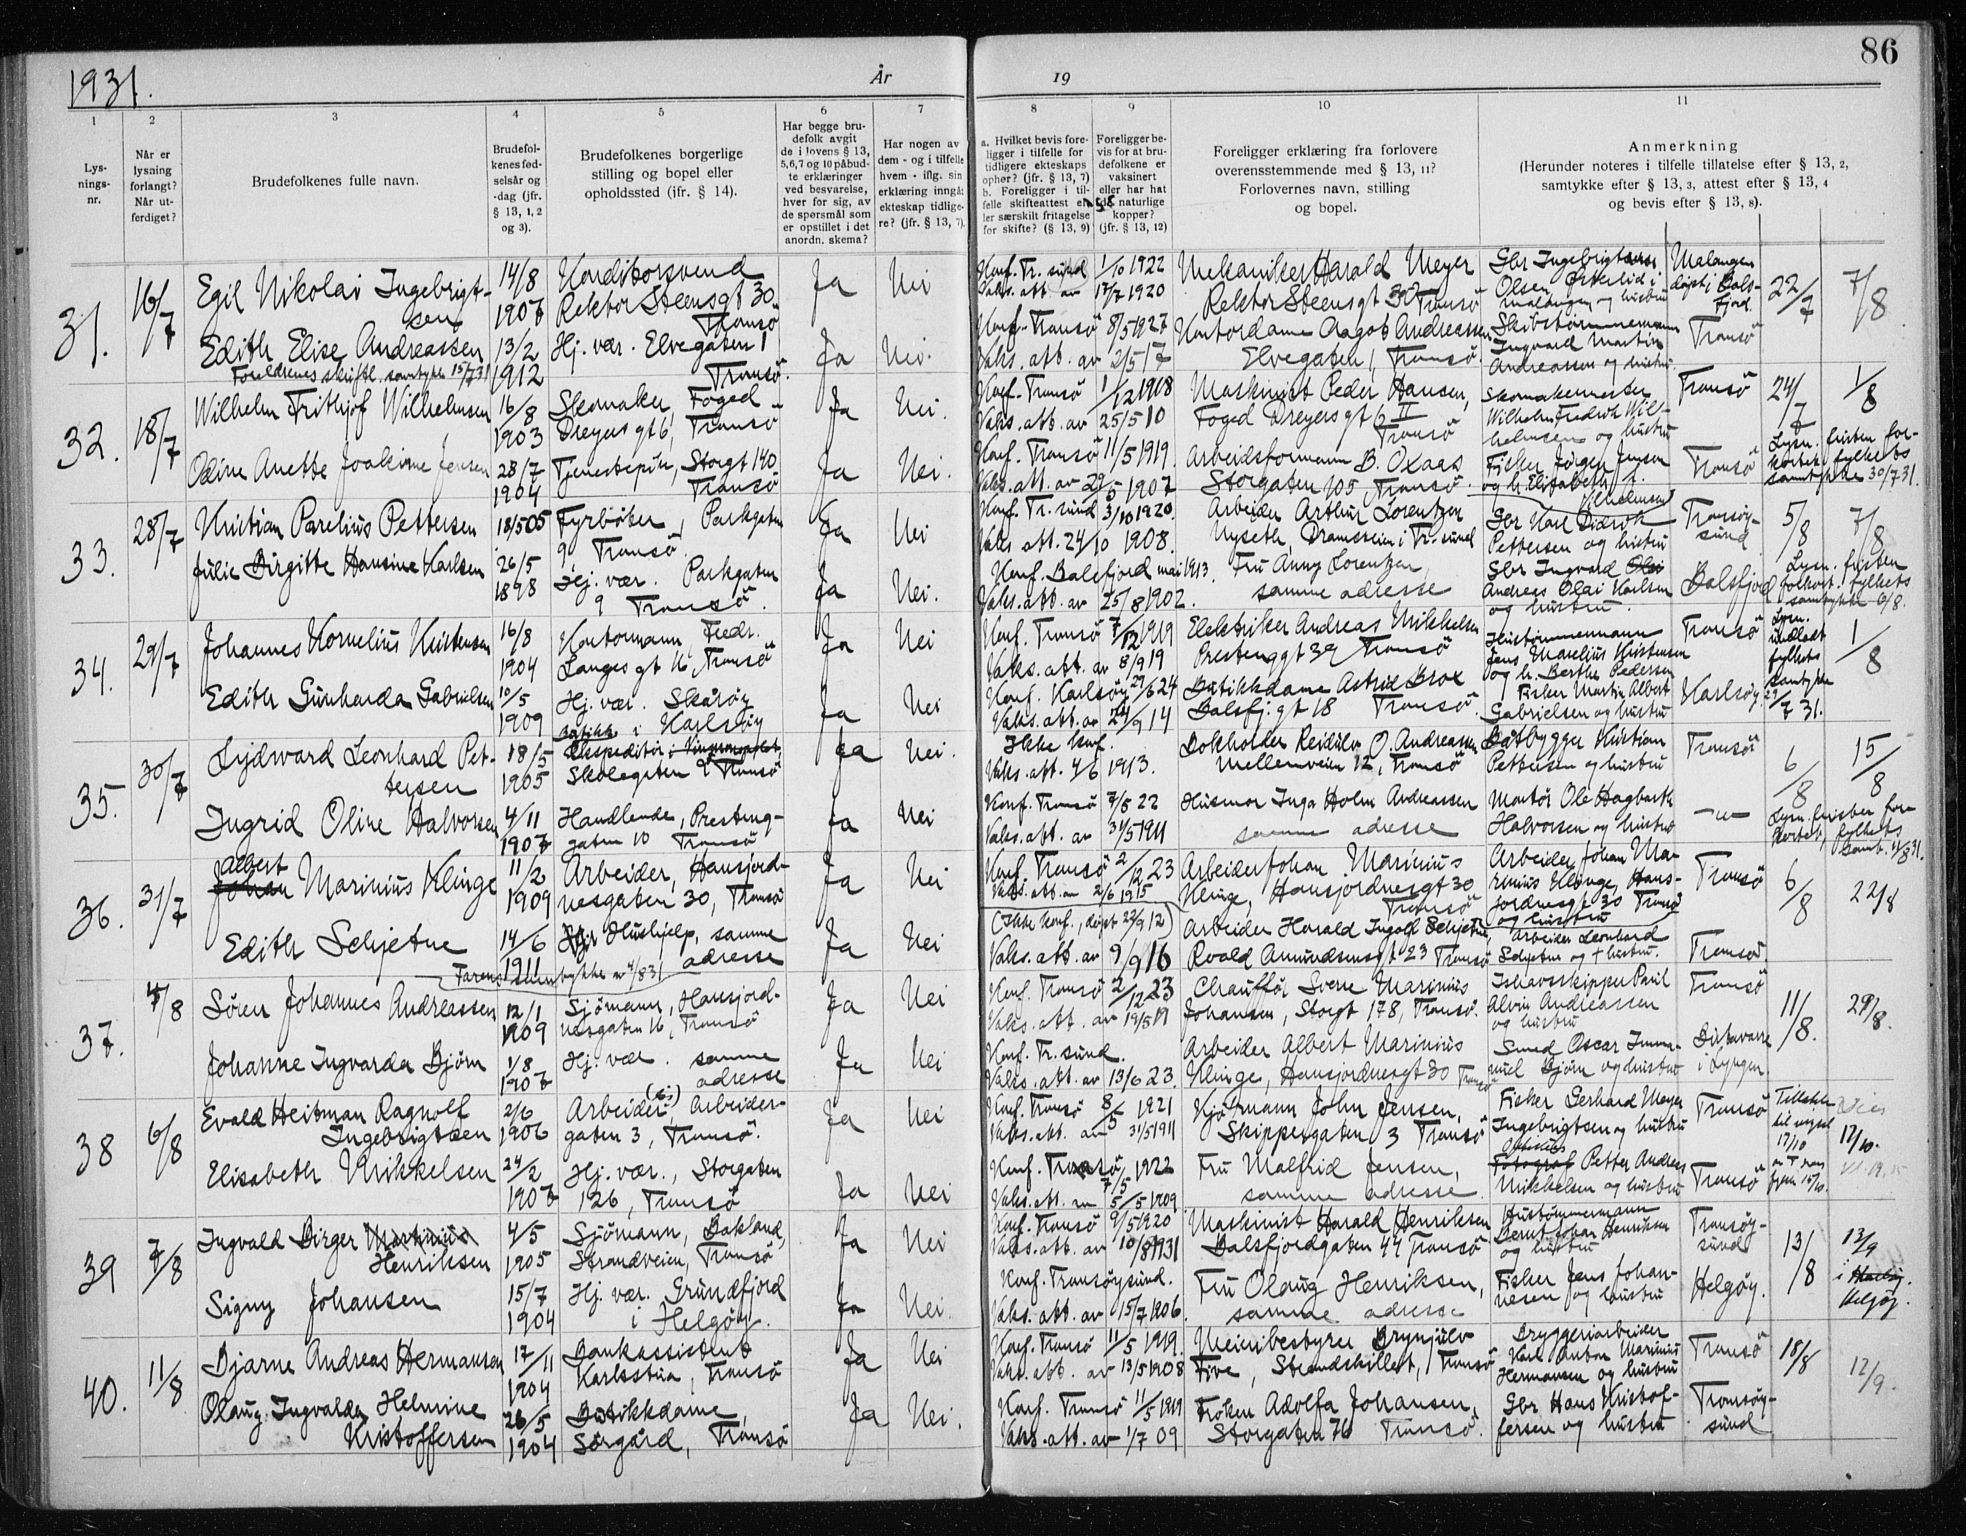 1931.
År
19
86
1
2
3
4
5
6
7
8
9
10
11
Lys-
nings-
nr.
Når er
lysning
forlangt?
Når ut-
ferdiget?
Brudefolkenes fulle navn.
Brudefol-
kenes fød-
selsår og
-dag (jfr.
§ 13, 1, 2
og 3).
Brudefolkenes borgerlige
stilling og bopel eller
opholdssted (jfr. § 14).
Har begge bru-
defolk avgit
de i lovens § 13,
5,6,7 og 10 påbud-
te erklæringer
ved besvarelse,
hver for sig, av
de spørsmål som
er opstillet i det
anordn. skema?
Har nogen av
dem - og i tilfelle
hvem - iflg. sin
erklæring inngåt
ekteskap tidlige-
re? (jfr. § 13, 7).
a. Hvilket bevis fore-
ligger i tilfelle for
tidligere ekteskaps
ophør? (jfr. § 13, 7)
b. Foreligger i til-
felle skifteattest el-
ler særskilt fritagelse
for skifte? (§ 13, 9)
Foreligger be-
vis for at bru-
defolkene er
vaksinert
eller har hat
de naturlige
kopper?
(jfr. § 13, 12)
Foreligger erklæring fra forlovere
overensstemmende med § 13, 11?
Forlovernes navn, stilling
og bopel.
Anmerkning
(Herunder noteres i tilfelle tillatelse efter § 13, 2,
samtykke efter § 13, 3, attest efter § 13, 4
og bevis efter § 13, 8).
31. 16/7 Egil Nikolai Ingebrigt-
sen
14/8 1907 Konditorsvend
Rektor Steensgt 30
Tromsö
Ja Nei
Konf. Tr. sund 1/10 1922
Vaks. att. av 17/7 1920
Mekaniker Harald Meyer
Rektor Steensgt 30 Tromsö
Gbr Ingebrigt
Olsen Österlid i
Malangen og hustru
Malangen
döpt i Bals-
fjord
22/7 7/8
Edith Elise Andreassen
Foreldrenes skriftl. samtykke 15/7 31
13/2 1912 Hj. vær. Elvegaten 1
Tromsö.
Ja Nei.
Konf. Tromsö 8/5 1927
Vaks. att. av 2/5 17
Kontordame Aagot Andreassen
Elvegaten 1, Tromsö.
Skibstømmermann
Ingvard Martin
Andreassen og hustru.
Tromsö
32. 18/7 Wilhelm Frithjof Wilhelmsen
16/8 1903 Skomaker, Foged
Dreyersgt 6, Tromsö
Ja Nei.
Konf. Tromsö 1/12 1918
Vaks. att. av 25/5 10
Maskinist Peder Hansen,
Foged Dreyersgt 6 II
Tromsö
Skomakermester
Wilhelm Fredrik Wil-
helmsen og hustru
Tromsö 24/7 1/8
Odine Anette Joakime Jensen
28/7 1904 Tjenestepike, Storgt 140
Tromsö
Ja Nei.
Konf. Tromsö 11/5 1919.
Vaks. att. av 29/5 1907
Arbeidsformann B. Oxaas
Storgaten 105, Tromsö
Fisker Jörgen Jensen
og h. Elisabeth f.
Vilhelmsen
Tromsö
Lysn. fristen for-
kortet, fylkets
samtykke 30/7 31.
33. 28/7 Kristian Parelius Pettersen
18/5 05 Fyrböter, Parkgaten
9, Tromsö
Ja Nei
Konf. Tr. sund 3/10 1920.
Vaks att. 24/10 1908.
Arbeider Arthur Lorentzen
Nyseth, Dramsveien i Tr. sund
Gbr Karl Didrik
Pettersen og hustru
Tromsöy-
sund
5/8 7/8
Julie Birgitte Hansine Karlsen
26/5 1898 Hj. vær. Parkgaten
9 Tromsö.
Ja Nei.
Konf. Balsfjord mai 1913.
Vaks. att. av 25/8 1902.
Fru Anny Lorentzen,
samme adresse
Gbr Ingvard
Andreas Olai Karlsen
og hustru.
Balsfjord
Lysn. fristen
forkort. fylkets
samtykke 6/8.
34. 29/7 Johannes Kornelius Kristensen
16/8 1904 Kontormann Fredr.
Langesgt 16, Tromsö
Ja Nei
Konf. Tromsö 7/12 1919
Vaks. att. av 8/9 19
Elektriker Andreas Mikkelsen
Prestenggt 39 Tromsö
Hustömmermann
Jens Marelius Kristensen
og h. Berthe Pedersen
Tromsö
Lysn.
undlatt
fylkets
samtykke
29/7 31.
1/8
Edith Gunharda Gabrielsen
10/5 1909 Hj. vær. Skaröy
i Karlsöy
Ja Nei
Konf. Karlsöy 29/6 24
Vaks. att. av 24/9 14
Butikkdame Astrid Brox
Balsfj. gt 18 Tromsö.
Fisker Martin Albert
Gabrielsen og hustru
Karlsöy
35. 30/7 Lydward Leonhard Pet-
tersen
18/5 1905 Butikk
Ekspeditör i Vinmonopolet,
Skolegaten 2 Tromsö
Ja Nei.
Ikke konf.
Vaks. att. 4/6 1913.
Bokholder Reidulv O. Andreassen
Mellemveien 12, Tromsö
Båtbygger Kristian
Pettersen og hustru
Tromsö 6/8 15/8
Ingrid Oline Halvorsen
4/11 1907 Handlende, Presteng-
gaten 10 Tromsö
Ja Nei
Konf. Tromsö 7/5 22
Vaks. att. av 31/5 1911
Husmor Inga Holm Andreassen
samme adresse
Montör Ole Hagbarth
Halvorsen og hustru
—"—
Lysn. fristen for-
kortet, fylkets
samt. 11/8 31.
36. 31/7 Albert
Johan Marinius Klinge
11/2 1909 Arbeider, Hansjord-
nesgaten 30, Tromsö
Ja Nei
Konf. Tromsö 2/12 23
Vaks. att. av 2/6 1915
Arbeider Johan Marinius
Klinge, Hansjordnesgt 30
Tromsö
Arbeider Johan Ma-
rinius Klinge, Hans-
jordnesgt 30 Tromsö
og hustru
Tromsö 6/8 22/8
Edith Schjetne
14/6 1911 Hushjelp, samme
adresse
Farens samtykke av 4/8 31
Ja Nei
(Ikke konf., döpt 22/9 12)
Vaks. att. av 9/9 16
Arbeider Harald Ingolf Schjetne,
Roald Amundsensgt 23 Tromsö
Arbeider Leonhard
Schjetne og + hustru.
Tromsö
37. 4/8 Sören Johannes Andreassen
12/1 1909 Sjömann, Hansjord-
nesgaten 16, Tromsö
Ja Nei
Konf. Tromsö 2/12 23
Vaks. att. av 19/5 19
Chauffør Sverre Marinius
Johansen, Storgt 178, Tromsö.
Ishavsskipper Paul
Alvin Andreassen
og hustru
Tromsö 11/8. 29/8.
Johanne Ingvarda Björn
1/8 1907 Hj. vær. samme
adresse
Ja Nei
Konf. Tr. sund.
Vaks. att. av 13/6 23.
Arbeider Albert Marinius
Klinge, Hansjordnesgt 30 Tromsö
Smed Oscar Imma-
nuel Björn og hustru
Birtavarre
i Lyngen
38 6/8 Evald Heitman Ragnolf
Ingebrigtsen
2/6 1906 Arbeider Arbeider-
gaten 3, Tromsö.
Ja Nei
Konf. Tromsö 8/5 1921
Vaks. att. av 31/5 1911
Kjörmann John Jensen,
Skippergaten 3 Tromsö
Fisker Gerhard Meyer
Ingebrigtsen og hustru
Tromsö
Tillatelse
til vigsel
17/10
17/10.
Elisabeth Mikkelsen
24/2 1907 Hj. vær., Storgaten
126, Tromsö
Ja Nei
Konf. Tromsö 7/5 1922
Vaks. att. av 5/5 1909
Fru Malfrid Jensen,
samme adresse.
Fotograf Petter Andreas
Mikkelsen og hustru
Tromsö
39 7/8 Ingvald Birger Martinius
Henriksen
4/5 1905 Sjömann, Bakland,
Strandveien, Tromsö
Ja Nei
Konf. Tromsö 9/5 1920
Vaks. att. av 10/8 1931
Maskinist Harald Henriksen
Balsfjordgaten 44 Tromsö
Hustömmermann
Bernt Johan Henriksen
og hustru
Tromsöy-
sund
13/8 13/9
Signy Johansen
15/7 1904 Hj. vær. Grundfjord
i Helgöy.
Ja Nei.
Konf. Tromsöysund.
Vaks. att. av 15/7 1906.
Fru Olaug Henriksen,
samme adresse
Fisker Jens Johan-
nesen og hustru
Helgöy.
i
Helgöy.
40. 11/8 Bjarne Andreas Hermansen
17/11 1904 Bankassistent
Karlsstua, Tromsö
Ja Nei
Konf. Tromsö 11/5 1919.
Vaks. att. av 13/5 1908
Meieribestyrer Brynjulv
Five, Strandskillet, 1 Tromsö
Bryggeriarbeider
Karl Anton Marinius
Hermansen og hustru
Tromsö 18/8 12/9.
Olaug Ingvalda Helmine
Kristoffersen
26/5 1904 Butikkdame,
Sörgård, Tromsö
Ja Nei.
Konf. Tromsö 11/5 1919
Vaks. att. av 1/7 09
Fröken Adolfa Johansen,
Storgaten 76 Tromsö.
Gbr Hans Kristof-
fersen og hustru
Tromsöy-
sund